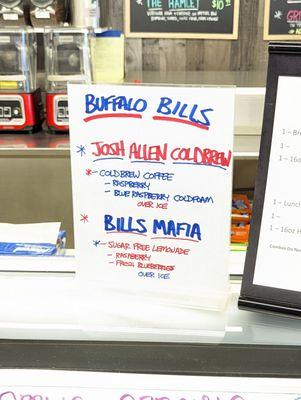 THE HAMLET
$10
BUFFALO BILLS
* JOSH ALLEN COLDBREW
* - COLDBREW COFFEE
- RASPBERRY
- BLUE RASPBERRY COLDFOAM
OVER ICE
* BILLS MAFIA
* - SUGAR FREE LEMONADE
- RASPBERRY
- FRESH BLUEBERRIES
OVER ICE
1 - Br
1 -
1 - 16
1 - Lunch
1 -
1 - 16oz H
Combos